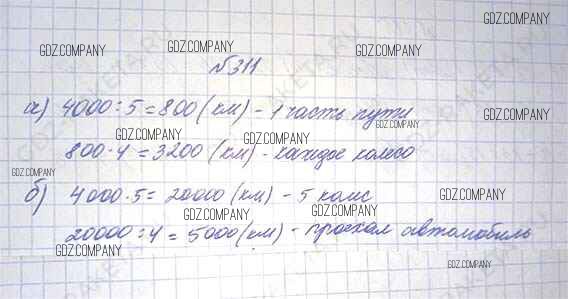 №311
а) 4000:5=800(км) - 1 часть пути
800·4=3200 (км) - каждое колесо
б) 4000·5=20000 (км) - 5 колес
20000:4=5000(км) - проехал автомобиль
GDZ.COMPANY
GDZ.COMPANY
GDZ.COMPANY
GDZ.COMPANY
GDZ.COMPANY
GDZ.COMPANY
GDZ.COMPANY
GDZ.COMPANY
GDZ.COMPANY
GDZ.COMPANY
GDZ.COMPANY
GDZ.COMPANY
GDZ.COMPANY
GDZ.COMPANY